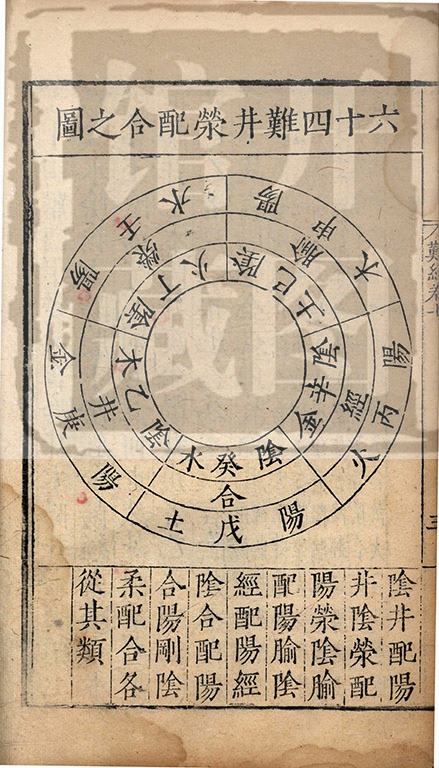 六十四難井滎配合之圖
陽甲木
腧
陰己土
陽丙火
經
陰辛金
陽戊土
合
陰癸水
陽庚金
井
陰乙木
陽壬水
滎
陰丁火
陰井配陽
井陰滎配
陽滎陰腧
配陽腧陰
經配陽經
陰合配陽
合陽剛陰
柔配合各
從其類
難經卷七
三